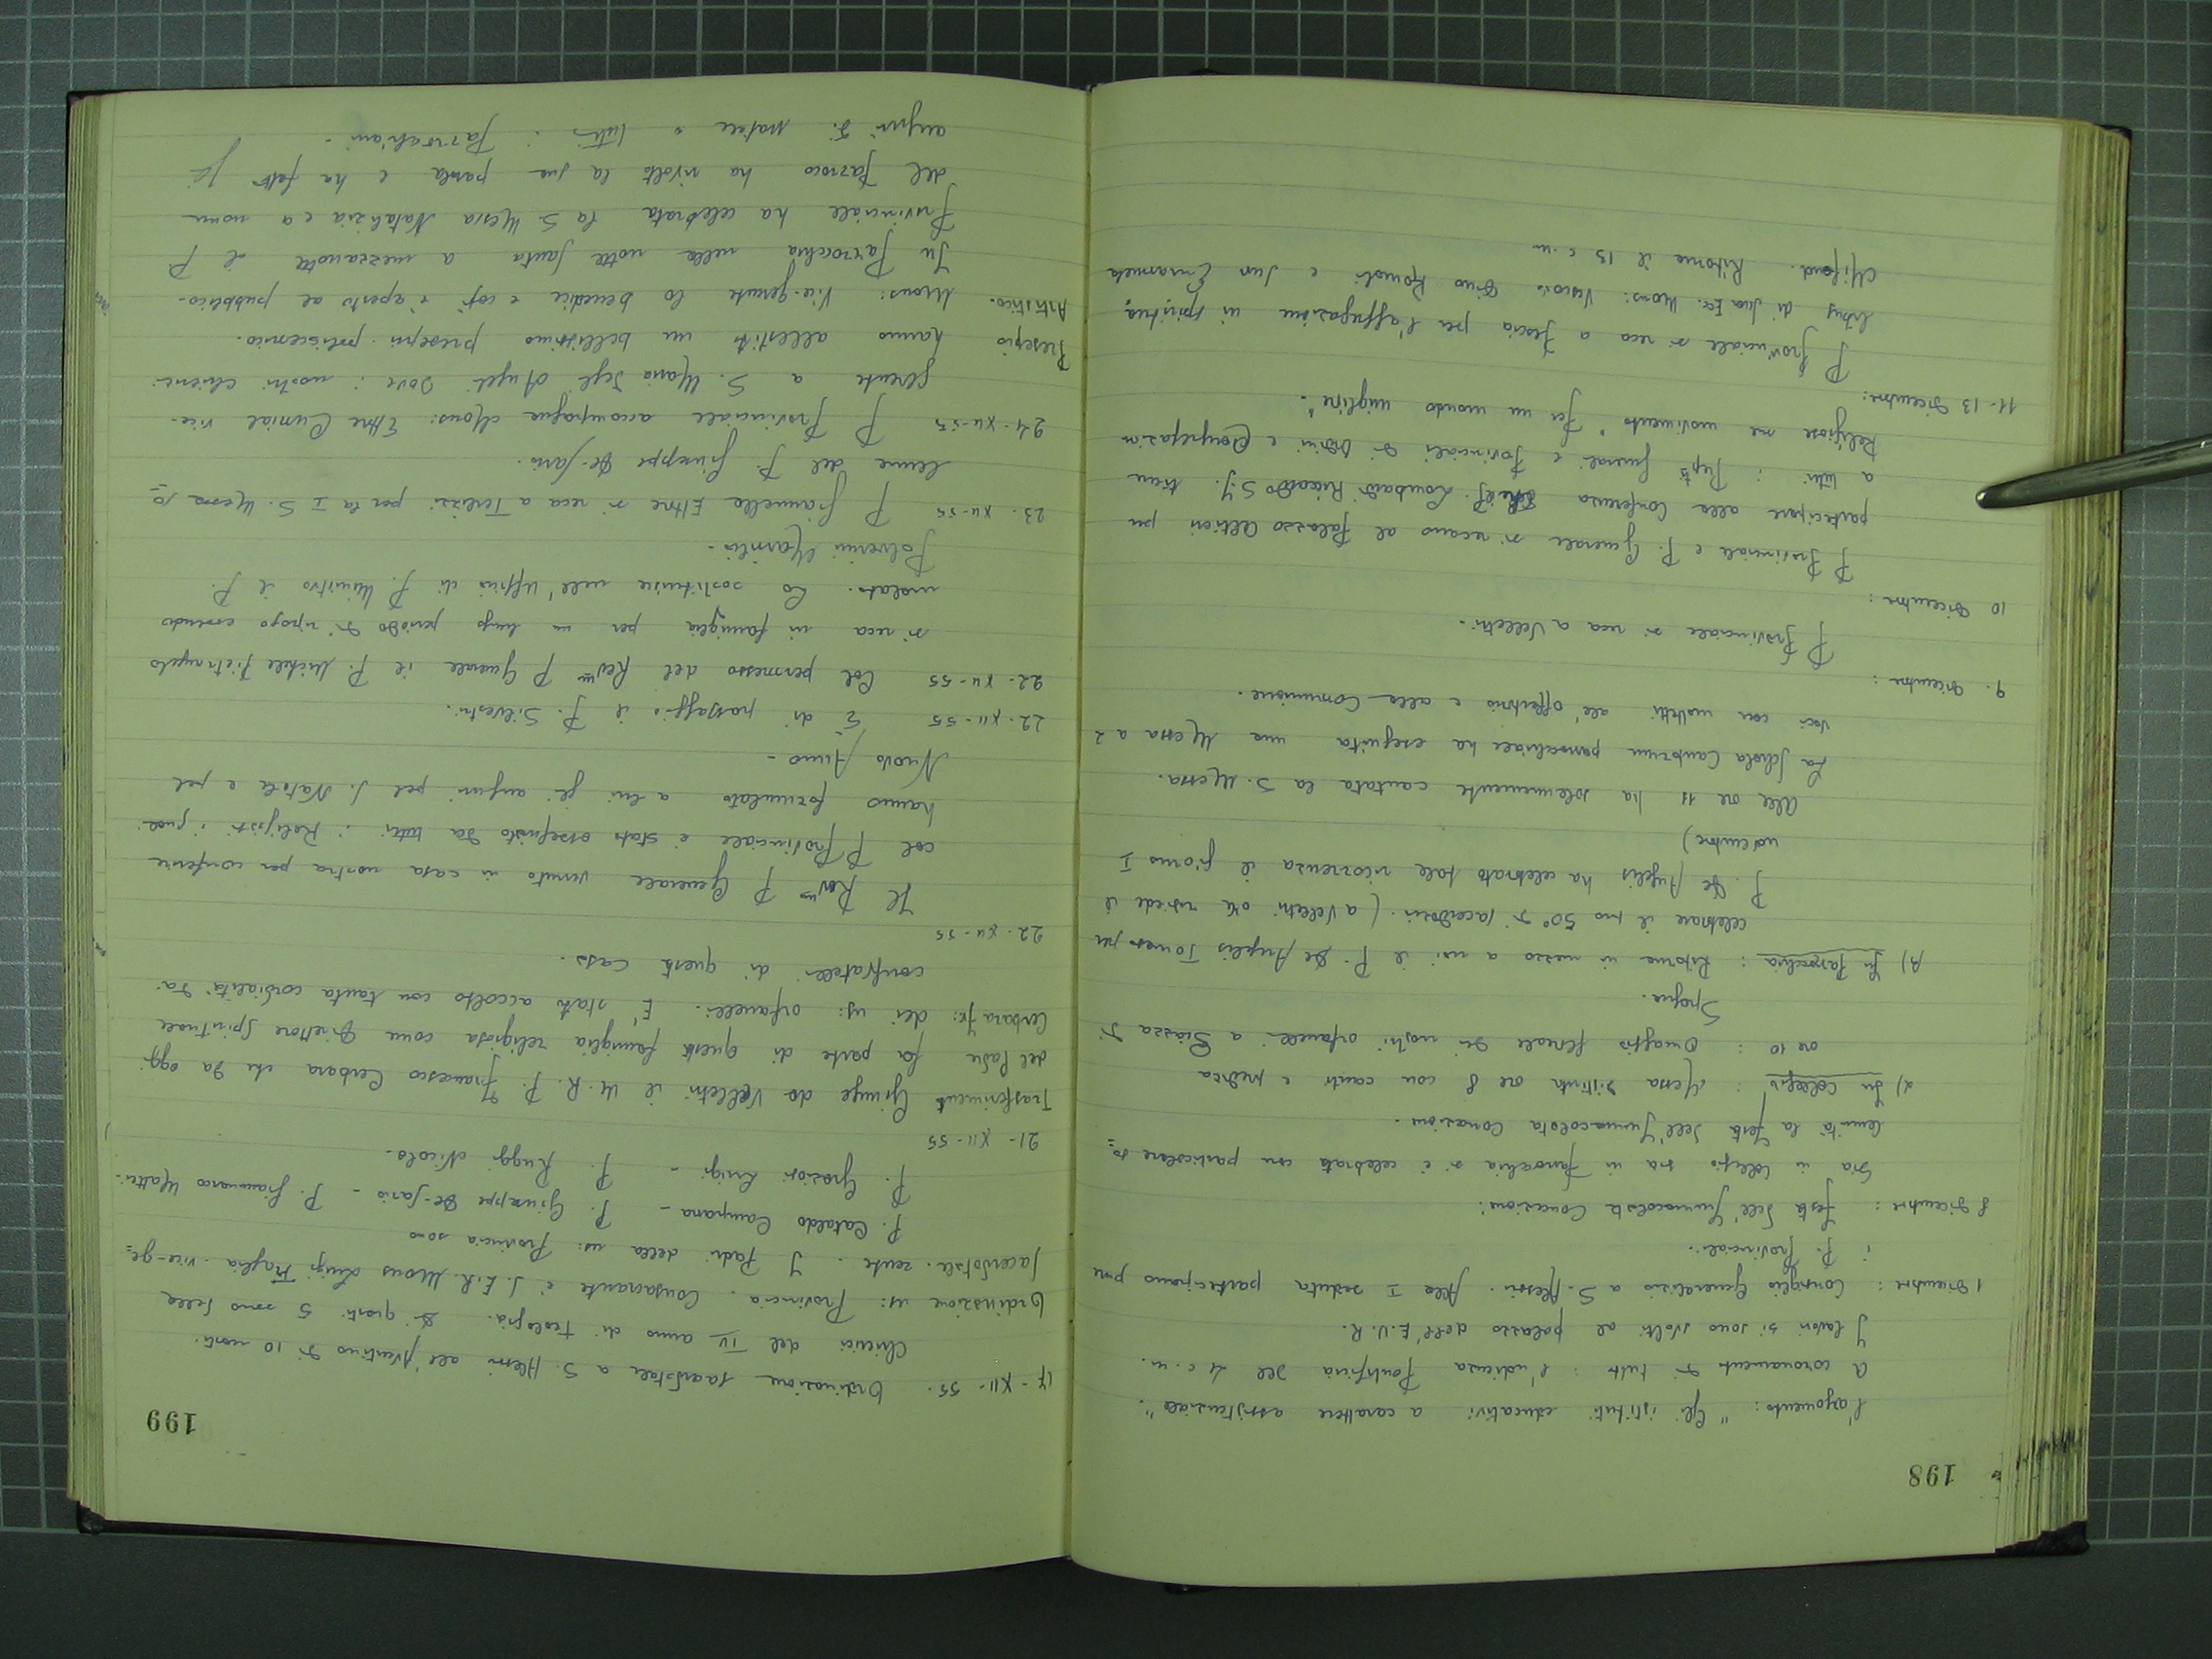 198
l'argomento: "Gli istituti educativi a carattere assistenziale".
A coronamento di tutto: l'udienza Pontificia del 4 c.m.
I lavori si sono svolti al palazzo dell'E.U.R.
1 Dicembre: Consiglio Generalizio a S. Alessio. Alla I seduta partecipano pure
i P. Provinciali.
8 Dicembre: Festa dell'Immacolata Concezione:
Sia in Collegio sia in Parrocchia si è celebrata con particolare so=
lennità la festa dell'Immacolata Concezione.
a) In Collegio: Messa distinta ore 8 con canti e predica
ore 10: Omaggio floreale dei nostri orfanelli a Piazza di
Spagna.
B) In Parrocchia: Ritorna in mezzo a noi il P. De Angelis per
celebrare il suo 50° di sacerdozio. (a Velletri ove risiede il
P. De Angelis ha celebrato tale ricorrenza il giorno I
novembre)
Alle ore 11 ha solennemente cantata la S. Messa.
La Schola Cantorum parrocchiale ha eseguita una Messa a 2
voci con mottetti all'offertorio e alla Comunione.
9. Dicembre:
P. Provinciale si reca a Velletri.
10 Dicembre:
P. Provinciale e P. Generale si recano al Palazzo Altieri per
partecipare alla Conferenza che P. Lombardi Riccardo S.J. tiene
a tutti i Sup. Generali e Provinciali di Ordini e Congregazioni
Religiose sul movimento "Per un mondo migliore".
11-13 Dicembre:
P. Provinciale si reca a Pescia per l'aggregazione in spiritua
libus di Sua Ecc. Mons: Vescovo Dino Romoli e Suor Emanuela
. Ritorna il 13 c.m.
199
17-XII-55. Ordinazione sacerdotale a S. Alessio all'Aventino di 10 nostri
Chierici del IV anno di teologia. Di questi 5 sono della
Ordinazione ns: Provincia. Consacrante è S.E.R. Mons Luigi Traglia vice-ge=
sacerdotale. rente. I Padri della ns: Provincia sono
P. Cataldo Campana - P. Giuseppe De-Fario - P. Francesco Mattei.
P. Luigi - P. Ruggi Nicola.
21-XII-55
Trasferimento Giunge da Velletri il M.R.P. Francesco Cerbara che da oggi
del Padre fa parte di questa famiglia religiosa come Direttore Spirituale
Cerbara Fr: dei ns: orfanelli. E' stato accolto con tanta cordialità dai
confratelli di questa casa.
22-XII-55
Il Rev.mo P. Generale venuto in casa nostra per conferire
col P. Provinciale è stato ossequiato da tutti i Religiosi i quali
hanno formulato a lui gli auguri pel S. Natale e pel
Nuovo Anno -
22-XII-55 È di passaggio il P. Silvestri.
22-XII-55 Col permesso del Rev.mo P. Generale il P. Michele Pietrangelo
si reca in famiglia per un lungo periodo di riposo essendo
malato. Lo sostituisce nell'Ufficio di P. Ministro il P.
Polverini
23-XII-55 P. Giannella Ettore si reca a Terlizzi per la I S. Messa so=
lenne del P. Giuseppe De-Fario.
24-XII-55 P. Provinciale accompagna Mons: Ettore Cunial vice-
gerente a S. Maria degli Angeli dove i nostri chierici
Presepio hanno allestito un bellissimo presepio poliscenico.
Artistico. Mons: Vice-gerente lo benedice e così è aperto al pubblico.
In Parrocchia nella notte santa a mezzanotte il P
Provinciale ha celebrata la S. Messa Natalizia e a nome
del parroco ha rivolto la sua parola e ha fatto gli
auguri di Natale a tutti i Parrocchiani.